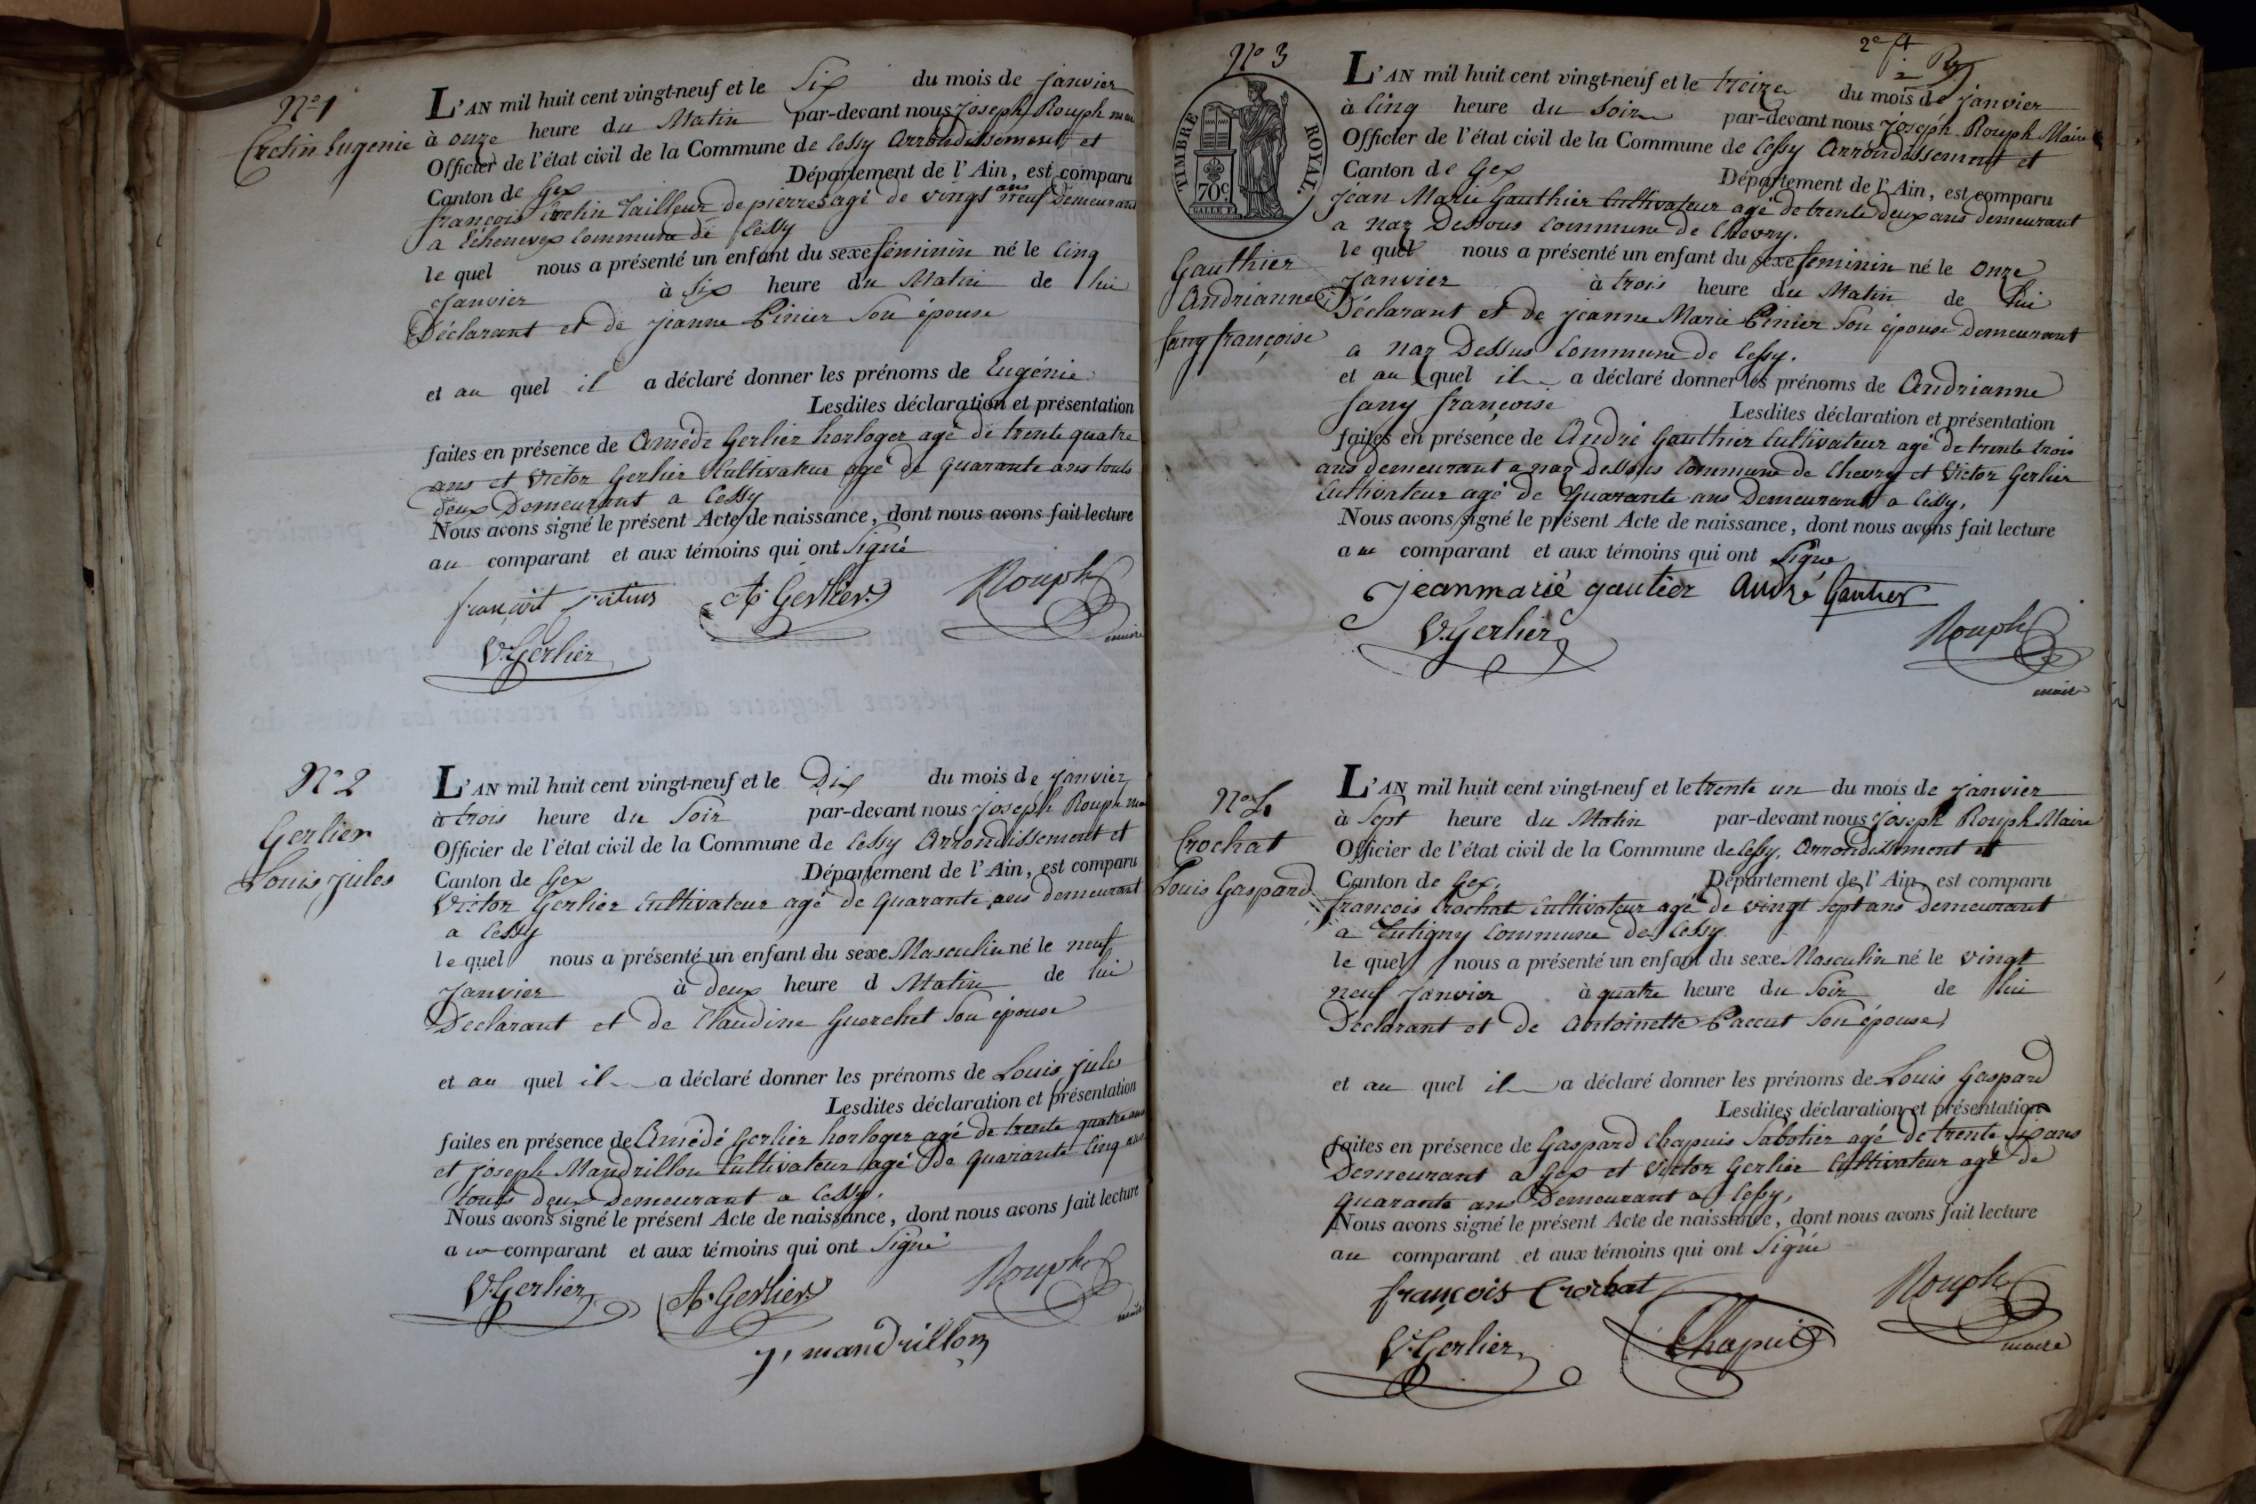 Nº 1
Cretin Eugenie
L'AN mil huit cent vingt-neuf et le Six du mois de janvier
à onze heure du Matin par-devant nous Joseph Rouph
Officier de l'état civil de la Commune de Cessy Arrondissement et
Canton de Gex Département de l'Ain, est comparu
françois Cretin Tailleur de pierres agé de vingt neuf ans Demeurant
a Echenevex Commune de Cessy
le quel nous a présenté un enfant du sexe féminin né le Cinq
Janvier à Six heure du Matin de lui
Déclarant et de jeanne Pinier Son épouse
et au quel il a déclaré donner les prénoms de Eugénie
Lesdites déclaration et présentation
faites en présence de Amédé Gerlier horloger agé de trente quatre
ans et Victor Gerlier Cultivateur agé de quarante ans touts
deux Demeurant a Cessy
Nous avons signé le présent Acte de naissance, dont nous avons fait lecture
au comparant et aux témoins qui ont Signé
A. Gerlier Rouph
maire
V. Gerlier
Nº 2
Gerlier
Louis Jules
L'AN mil huit cent vingt-neuf et le Dix du mois de janvier
à trois heure du Soir par-devant nous joseph Rouph
Officier de l'état civil de la Commune de Cessy Arrondissement et
Canton de Gex Département de l'Ain, est comparu
Victor Gerlier Cultivateur agé de quarante ans demeurant
a Cessy
le quel nous a présenté un enfant du sexe Masculin né le neuf
Janvier à deux heure d Matin de lui
Declarant et de Claudine Guerchet Son épouse
et au quel il a déclaré donner les prénoms de Louis jules
Lesdites déclaration et présentation
faites en présence de Amédé Gerlier horloger agé de trente quatre ans
et joseph Mandrillon Cultivateur agé de quarante cinq ans
touts deux Demeurant a Cessy.
Nous avons signé le présent Acte de naissance, dont nous avons fait lecture
au comparant et aux témoins qui ont Signé
V. Gerlier A. Gerlier Rouph
maire
j. mandrillon
2e
Nº 3
TIMBRE ROYAL.
70c.
Gauthier
Andrianne
fany françoise
L'AN mil huit cent vingt-neuf et le treize du mois de janvier
à Cinq heure du Soir par-devant nous joseph Rouph Maire
Officier de l'état civil de la Commune de Cessy Arrondissement et
Canton de Gex Département de l'Ain, est comparu
jean Marie Gauthier Cultivateur agé de trente deux ans demeurant
a naz Dessous Commune de Chevry.
le quel nous a présenté un enfant du sexe feminin né le Onze
Janvier à trois heure du Matin de lui
Déclarant et de jeanne Marie Pinier Son épouse Demeurant
a naz Dessus Commune de Cessy.
et au quel il a déclaré donner les prénoms de Andrianne
fany françoise Lesdites déclaration et présentation
faites en présence de André Gauthier Cultivateur agé de trente trois
ans demeurant a naz Dessous Commune de Chevry et Victor Gerlier
Cultivateur agé de quarante ans Demeurant a Cessy,
Nous avons signé le présent Acte de naissance, dont nous avons fait lecture
au comparant et aux témoins qui ont Signé
jeanmarie gautier André Gautier
V. Gerlier Rouph
maire
Nº 4
Crochat
Louis Gaspard
L'AN mil huit cent vingt-neuf et le trente un du mois de janvier
à Sept heure du Matin par-devant nous joseph Rouph Maire
Officier de l'état civil de la Commune de Cessy, Arrondissement et
Canton de Gex. Département de l'Ain est comparu
françois Crochat Cultivateur agé de vingt Sept ans Demeurant
a Tutigny Commune de Cessy
le quel nous a présenté un enfant du sexe Masculin né le vingt
neuf Janvier à quatre heure du Soir de lui
Déclarant et de Antoinette Paccut Son épouse
et au quel il a déclaré donner les prénoms de Louis Gaspard
Lesdites déclaration et présentation
faites en présence de Gaspard Chapuis Sabotier agé de trente Six ans
Demeurant a Gex et Victor Gerlier Cultivateur agé de
quarante ans Demeurant a Cessy,
Nous avons signé le présent Acte de naissance, dont nous avons fait lecture
au comparant et aux témoins qui ont Signé
françois Crochat Rouph
maire
V. Gerlier Chapuis